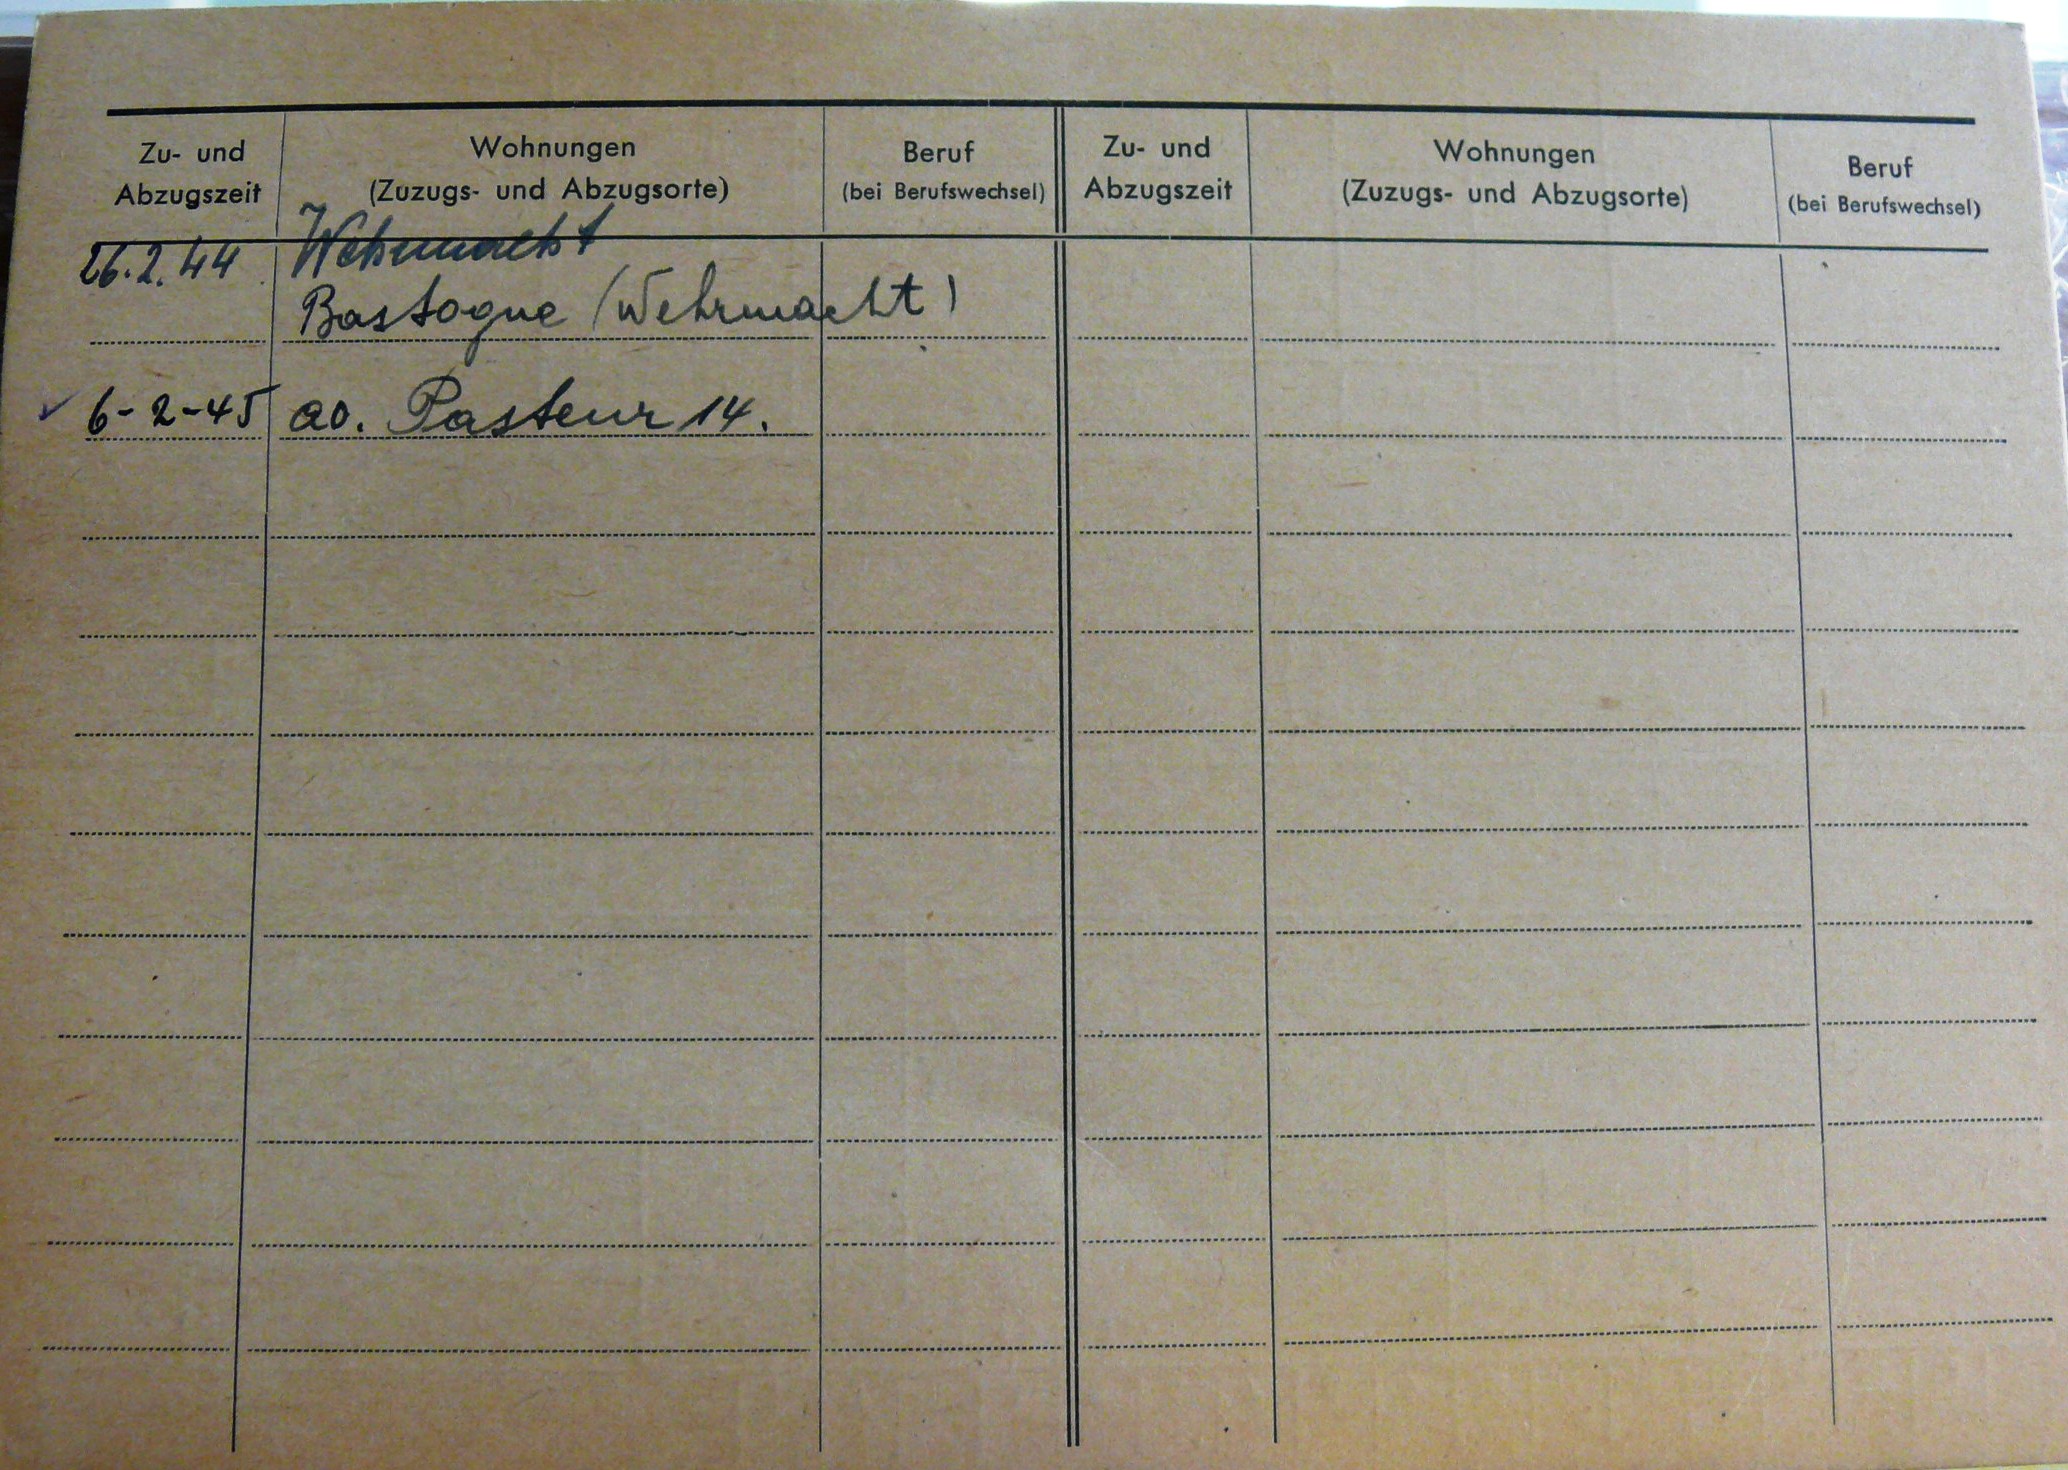 Zu- und Abzugszeit
Wohnungen
(Zuzugs- und Abzugsorte)
Beruf
(bei Berufswechsel)
Zu- und Abzugszeit
Wohnungen
(Zuzugs- und Abzugsorte)
Beruf
(bei Berufswechsel)
26.2.44 Wehrmacht
Bastogne (Wehrmacht)
6-2-45 av. Pasteur 14.